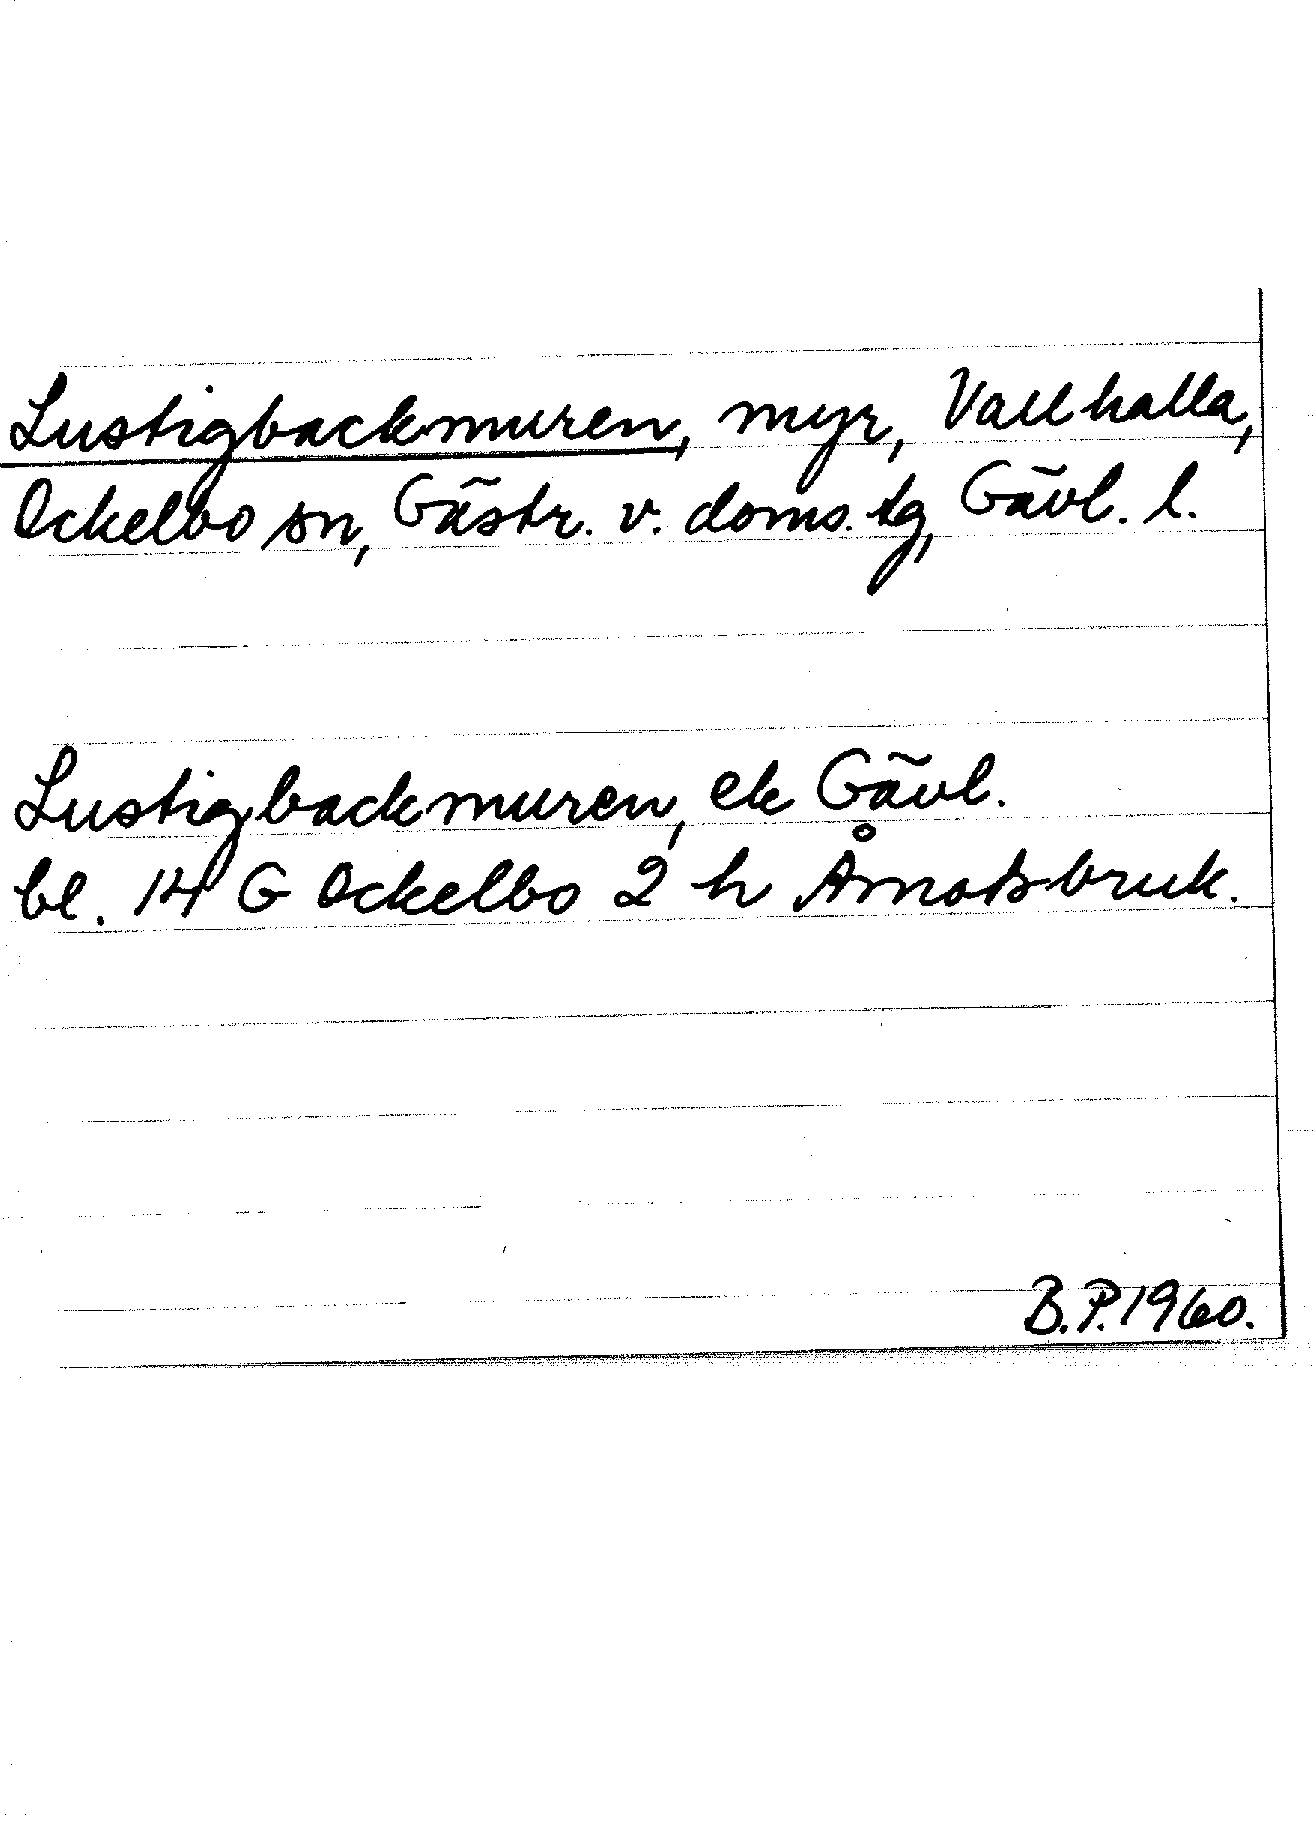 Lustigbackmuren, myr, Vallhalla,
Ockelbo sn, Gästr. v. doms. tg, Gävl. l.
Lustigbackmuren, ek Gävl.
bl. 14 G Ockelbo 2 h Åmotsbruk.
B.P. 1960.